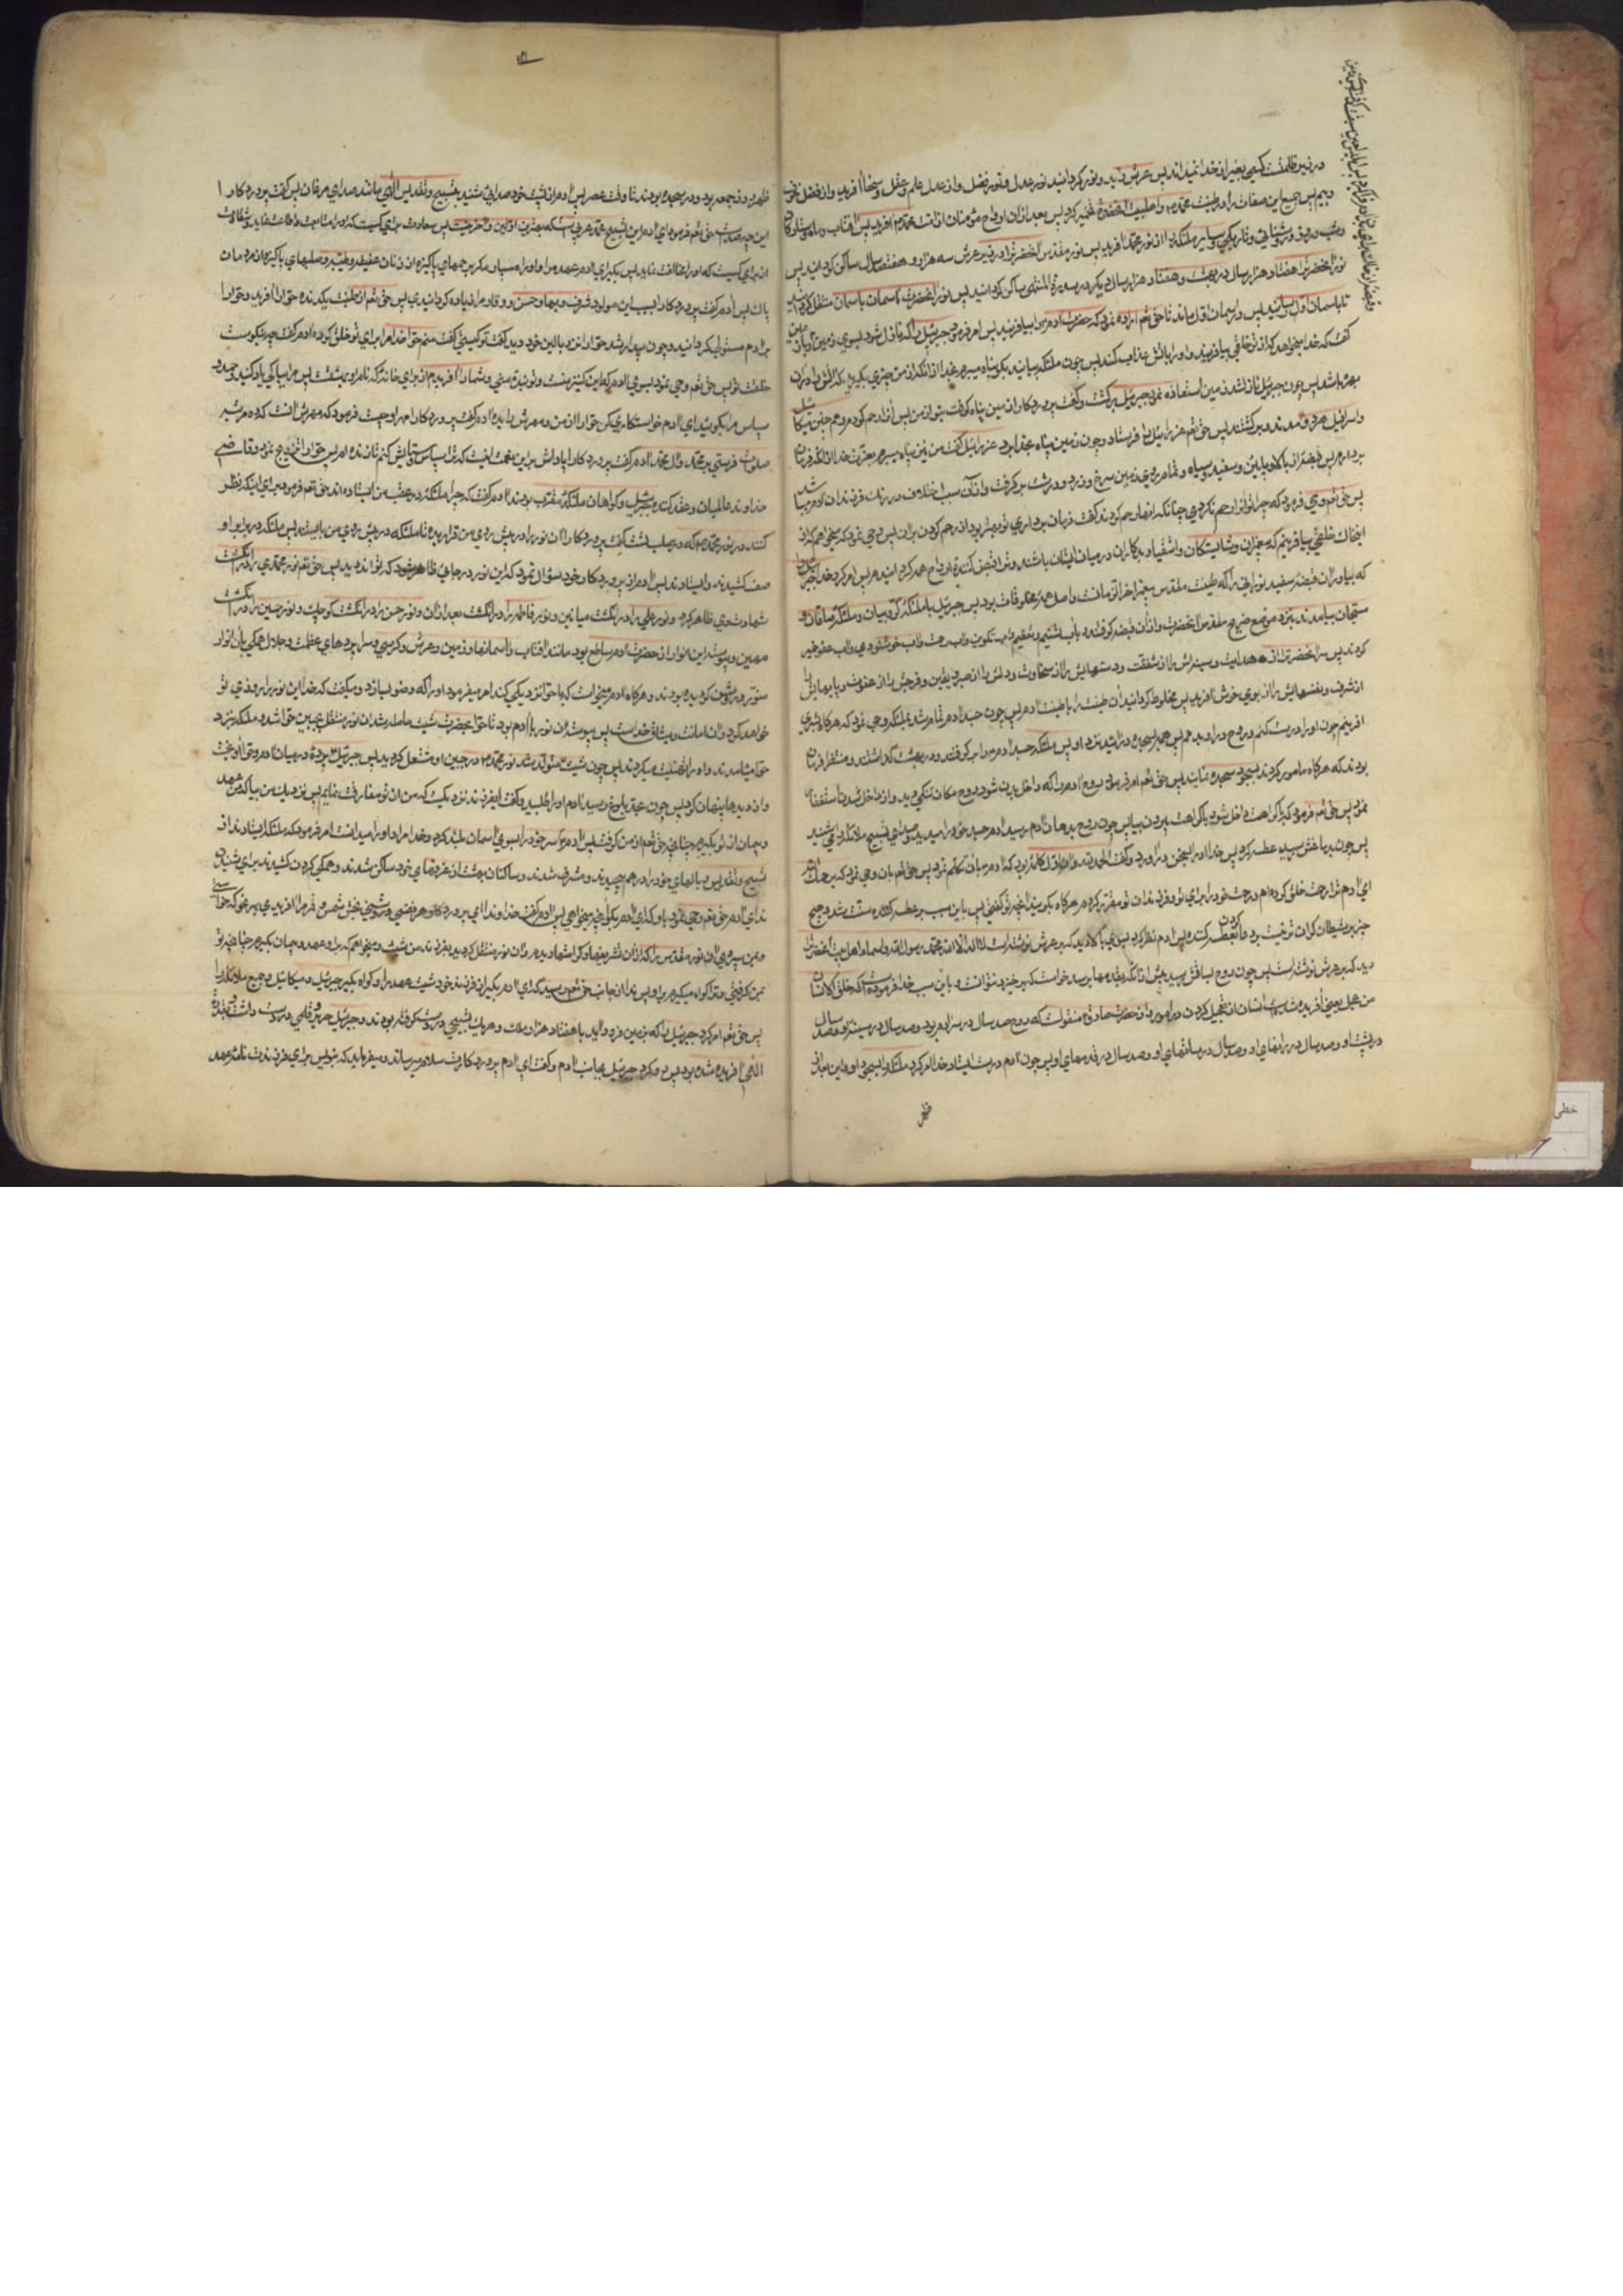 در زیر ظلمت کسی بغیر از خدا نمیداند پس عرش دید و نور کردانید نور عدل و نور فضل و از عدل علم و عقل و سخا آفرید و از فضل
و بیم پس جمیع این صفات را در طینت محمد ص و اهلبیت آنحضرت خمیر کرد پس بعد از آن ارواح مؤمنان از امت محمد ص آفرید پس آفتاب و ماه و ستارکان
و شب و روز و روشنایی و تاریکی و سایر ملئکه را از نور محمد آفرید پس نور مقدس آنحضرت را در زیر عرش سه هزار و هفتصد سال ساکن کردانید پس
نور آنحضرت را هفتاد هزار سال در بهشت و هفتاد هزار سال دیکر در سدرة المنتهی ساکن کردانید پس نور آنحضرت را از آسمان بآسمان منتقل کردانید
تا بآسمان اول رسانید پس در آسمان اول ماند تا حق تعم اراده نمود که حضرت آدم را بیافریند پس امر فرمود جبرئیل را که نازل شود بسوی زمین
کفت که خدا میخواهد که از تو خلقی بیافریند و او را بآتش عذاب کند پس چون ملئکه بیایند بکو پناه میبرم بخدا از آنکه از من چیزی بکیرید که آتش را در آن
بهره باشد پس چون جبرئیل نازل شد زمین استعاذه نمود جبرئیل برکشت و کفت پروردکارا زمین پناه کرفت بتو از من پس او را رحم کردم و همچنین میکا
و اسرافیل هر دو آمدند و برکشتند پس حق تعم عزرائیل را فرستاد و چون زمین پناه بخدا برد عزرائیل کفت من نیز پناه میبرم بعزت خدا از آنکه فرمان
بردارم پس قبضه از بالا و پایین و سفید و سیاه و تمام روی زمین سرخ و زرد و درشت برکرفت و از آن سبب اختلاف در رنک فرزندان آدم
پس حق تعم وحی فرمود که چرا تو او را رحم نکردی چنانکه آنها رحم کردند کفت فرمان برداری تو بهتر بود از رحم کردن بر آن پس وحی نمود که میخواهم که از
این خاک خلقی بیافرینم که پیغمبران و شایستکان و اشقیا و بدکاران در میان ایشان باشند و ترا قبض کننده ارواح همه کردانیدم پس امر کرد خدا جبرئیل را
که بیاورد آن قبضه سفید نورانی را که طینت مقدس پیغمبر آخر الزمانست و اصل همه مخلوقات بود پس جبرئیل با ملئکه کروبیان و ملئکه صافان و
مسبحان بیامدند بنزد موضع ضریح مقدس آنحضرت و از آن قبضه کرفتند
کردند پس سر آنحضرت را از هدایت و سینه‌اش را از شفقت و دستهایش را از سخاوت و دلش را از صبر و یقین و فرجش را از عفت و پایهایش را
از شرف و نفسهایش را از بوی خوش آفرید پس مخلوط کردانید آن طینت را با طینت آدم پس چون جسد آدم تمام شد بملئکه وحی نمود که
آفرینم چون او را درست کنم و روح در او بدمم پس همه بسجده درآئید نزد او پس ملئکه جسد آدم را برکرفتند و در بهشت کذاشتند و منتظر فرمان
بودند که هر کاه مامور کردند بسجود سجده نمایند پس حق تعم امر فرمود روح آدم را که داخل بدن شود روح مکان تنکی دید و از داخل شدن استعفا
نمود پس حق تعم فرمود که بکراهت داخل شود و بکراهت بیرون بیا پس چون روح بدیدهای آدم رسید آدم جسد خود را میدید و صدای تسبیح ملائکه را می شنید
پس چون بدماغش رسید عطسه کرد پس خدا او را بسخن درآورد و کفت الحمدلله و آن اول کلمه بود که آدم بآن تکلم نمود پس حق تعم بآن وحی نمود که یرحمک الله
ای آدم ترا از برای رحمت خلق کرده‌ام و رحمت خود را برای تو و فرزندان تو مقرر کرده‌ام هر کاه بکویند آنچه تو کفتی پس باین سبب بر عطسه کننده سنت شد و هیچ
چیز بر شیطان کرانتر نیست پس آدم نظر کرد بسوی بالا دید که بر عرش نوشته است لا اله الا الله محمد رسول الله و اسماء اهلبیت آنحضرت را
دید که بر عرش نوشته است پس چون روح بساقش رسید پیش از آنکه بقدمهایش برسد خواست که برخیزد نتوانست و باین سبب خدا فرموده است که خلق الانسان
من عجل یعنی آفریده شده است انسان از تعجیل کردن در امور و از حضرت صادق ع منقولست که روح صد سال در سر آدم بود و صد سال در سینه او و صد سال
در پشت او و صد سال در رانهای او و صد سال در ساقهای او و صد سال در قدمهای او پس چون آدم درست ایستاد خدا امر کرد ملئکه را بسجود او و این بعد از
ظهر
ظهر روز جمعه بود و در سجده بودند تا وقت عصر پس آدم از پشت خود صدایی شنید بتسبیح و تقدیس الهی مانند صدای مرغان پس کفت پروردکارا
این چه صداست حق تعم فرمود ای آدم این تسبیح محمد عربی است که بهترین اولین و آخرین است پس سعادت برای کسیست که او را متابعت و اطاعت نماید و شقاوت
از برای کسیست که او را مخالفت نماید پس بکیر ای آدم عهد مرا و او را مسپار مکر برحمهای پاکیزه از زنان عفیفه و طیبه و صلبهای پاکیزه از مردمان
پاک پس آدم کفت پروردکارا بسبب این مولود شرف و بها و حسن و وقار مرا زیاده کردانیدی پس حق تعم از طینت پاکیزه حوا را آفرید و حق
بر آدم مستولی کردانید و چون بیدار شد حوا را نزد بالین خود دید کفت تو کیستی کفت منم حوا خدا مرا برای تو خلق کرده آدم کفت چه نیکوست
خلقت تو پس حق تعم وحی نمود بسوی آدم که این کنیز منست و تو بنده منی و شما را آفریدم از برای خانه که نام او بهشتست پس مرا بپاکی یاد کنید و حمد و
سپاس مرا بکویید ای آدم خواستکاری کن حوا را از من و مهرش را بده آدم کفت پروردکارا مهر او چیست فرمود که مهرش آنست که ده مرتبه
صلوات فرستی بر محمد و آل محمد آدم کفت پروردکارا پاداش بر این نعمت اینست که ترا سپاس و ستایش کنم تا زنده‌ام پس حوا را تزویج نمود و قاضی
خداوند عالمیان و عقد کننده جبرئیل و کواهان ملئکه مقرب بودند آدم کفت که چرا ملئکه در عقب من ایستاده‌اند حق تعم فرمود برای اینکه نظر
کنند در نور محمد ص که در صلب تست کفت پروردکارا آن نور را در پیش روی من قرار بده تا ملئکه در پیش روی من بایستند پس ملئکه در برابر او
صف کشیدند و ایستادند پس آدم از پروردکار خود سؤال نمود که این نور در جایی ظاهر شود که تواند دید پس حق تعم نور محمدی را در انکشت
شهادت وی ظاهر کرد و نور علی را در انکشت میانین و نور فاطمه را در انکشت بعد از آن و نور حسن را در انکشت کوچک و نور حسین را در انکشت
مهین و پیوسته این انوار از حضرت آدم ساطع بود مانند آفتاب و آسمانها و زمین و عرش و کرسی و سراپردهای عظمت و جلال همکی بآن انوار
منور و روشن کردیده بودند و هر کاه آدم میخواست که با حوا نزدیکی کند امر میفرمود او را که وضو بسازد و میکفت که خدا این نور را روزی تو
خواهد کرد و آن امانت و میثاق خداست پس پیوسته آن نور با آدم بود تا حوا بحضرت شیث حامله شد آن نور منتقل بجبین حوا شد و ملئکه بنزد
حوا میآمدند و او را تهنیت میکردند پس چون شیث متولد شد نور محمد ص در جبین او مشتعل کردید پس جبرئیل پرده در میان آدم و حوا آویخت
و از دیدها پنهان کرد پس چون بحد بلوغ رسید آدم او را طلبید و کفت ای فرزند نزدیکست که من از تو مفارقت نمایم پس نزدیک من بیا که من عهد
و پیمان از تو بکیرم چنانچه حق تعم از من کرفت پس آدم سر خود را بسوی آسمان بلند کرد و خدا مراد او را میدانست امر فرمود که ملئکه ایستادند از
تسبیح و تقدیس و بالهای خود را در هم پیچیدند و مشرف شدند و ساکنان بهشت از غرفهای خود ساکن شدند و همکی کردن کشیدند برای شنیدن
ندای آدم حق تعم وحی نمود باو که ای آدم بکو آنچه میخواهی پس آدم کفت خداوندا ای پروردکار هر نفسی و روشنی بخش شمس و قمر مرا آفریدی بهر نحو که خواستی
و بمن سپردی آن نور مقدس را که از آن تشریفها و کرامتها دیدم و آن نور منتقل کردید بفرزند من شیث و میخواهم که بر او عهد و پیمان بکیرم چنانچه تو
بمن کرفتی و ترا کواه میکیرم بر او پس ندا از جانب حق تعم رسید که ای آدم بکیر از فرزند خود شیث عهد را و کواه بکیر جبرئیل و میکائیل و جمیع ملائکه را
پس حق تعم امر کرد جبرئیل را که بزمین فرود آید با هفتاد هزار ملک و هر یک تسبیحی در دست کرفته بودند و جبرئیل حریر و قلمی در دست داشت
الهی آفریده شده بود پس رو کرد جبرئیل بجانب آدم و کفت ای آدم پروردکارت سلام میرساند و میفرماید که بنویس برای فرزندت نامه عهد